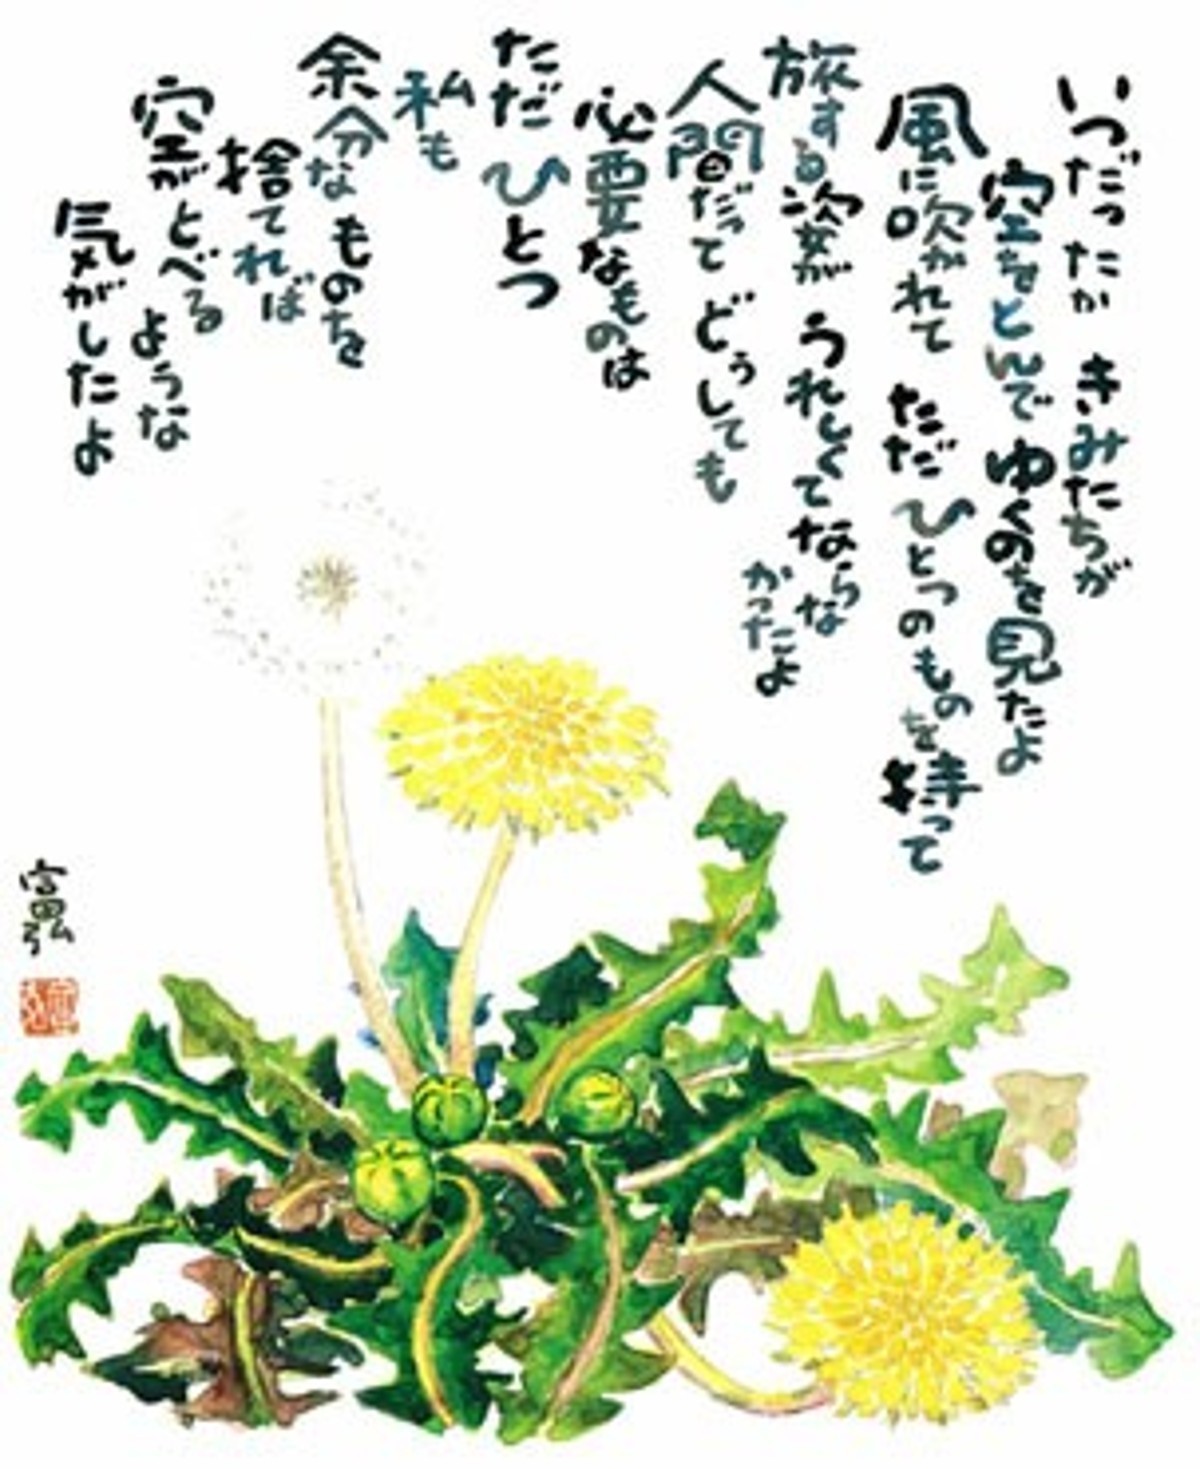 いつだったか きみたちが
空をとんでゆくのを見たよ
風に吹かれて ただひとつのものを持って
旅する姿が うれしくてならなかったよ
人間だって どうしても
必要なものは
ただひとつ
私も
余分なものを
捨てれば
空がとべるような
気がしたよ
富弘